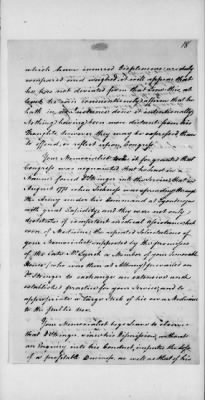 18
which have incurred Displeasure are duly
compared and weighed, it will appear that
he has not deviated from that Law: this, at
least he can conscientiously affirm that he
hath in no Instance done it intentionally
Nothing having been more distant from his
Thoughts however they may be expressed than
to offend, or reflect upon, Congress.
Your Memorialist took it for granted that
Congress was acquainted that he had in a
Manner forced Dr Stringer into the Service in
August 1775 when Sickness was spreading through
the Army under his Command at Tyonderoga
with great Rapidity, and they were not only
destitute of comfort or medical assistance but
even of Medicine; the repeated solicitations of
your Memorialist supported by the promises
of the late Mr Lynch a Member of your Honorable
House, who was then at Albany prevailed on
Dr Stringer to exchange an extensive and
established practice for your Service, and to
appropriate a large Stock of his own Medicine
to the public Use.
Your Memorialist begs Leave to observe
that Dr Stringer since his Dismission, without
an Enquiry into his Conduct, imputes the Loss
of a profitable Business as well as that of his